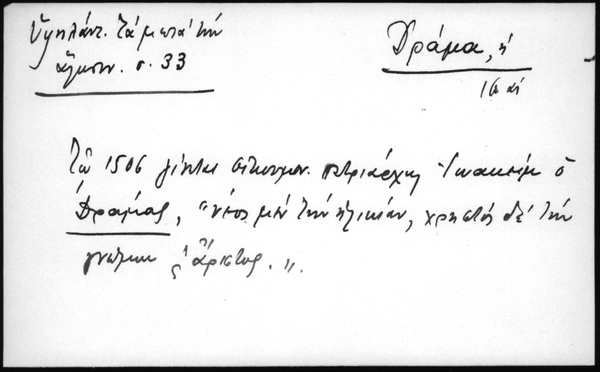 Ὑψηλάντ. Τὰ μετὰ τὴν
ἅλωσιν. σ. 33
Δράμα, ἡ
16 αἰ
Τῷ 1506 γίνεται οἰκουμεν. πατριάρχης Ἰωακεὶμ ὁ
Δράμας, "νέος μὲν τὴν ἡλικίαν, χρηστὸς δὲ τὴν
γνώμην ἄριστος."